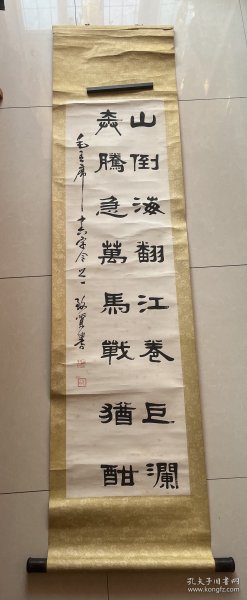 山倒海翻江卷巨瀾
奔騰急萬馬戰猶酣
毛主席十六字令之一 致賢書
孔夫子旧书网
kongfz.com